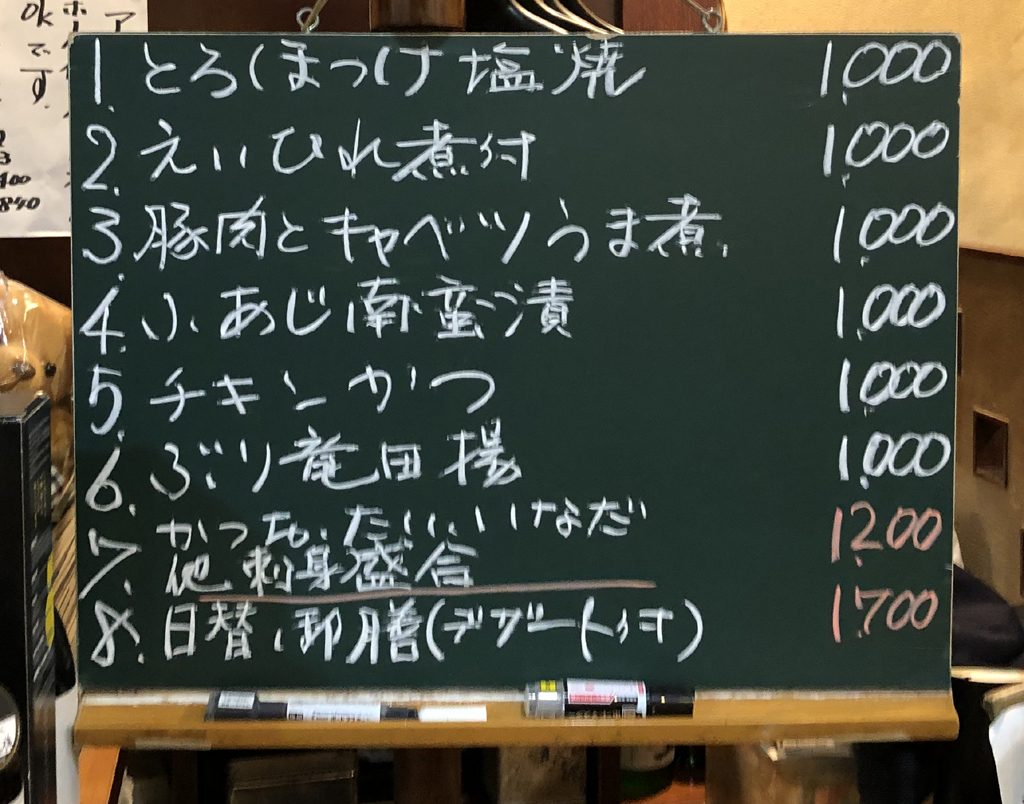 ア
ホ
OK
です
100
840
1. とろほっけ塩焼 1,000
2. えいひれ煮付 1,000
3. 豚肉とキャベツうま煮 1,000
4. 小あじ南蛮漬 1,000
5. チキンかつ 1,000
6. ぶり竜田揚 1,000
7. かつを、たい、いなだ
他刺身盛合 1,200
8. 日替り御膳(デザート付) 1,700